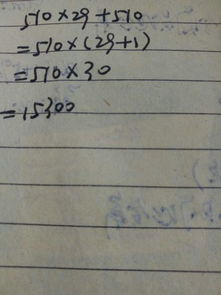 510×29+510
=510×(29+1)
=510×30
=15300